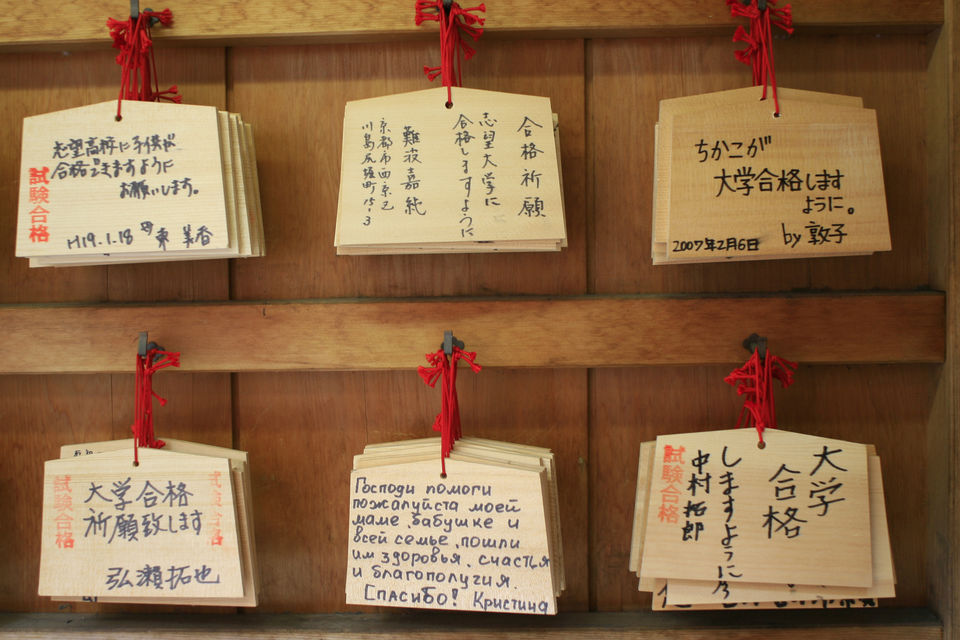 志望高校に子供が
合格できますように
お願いします。
試験合格
H19.1.18
東 美香
合格祈願
志望大学に
合格しますように
難波嘉純
京都市西京区
川島尻堀町15-3
ちかこが
大学合格します
ように。
2007年2月6日 by 敦子
試験合格
大学合格
祈願致します
弘瀬拓也
試験合格
Господи помоги
пожалуйста моей
маме, бабушке и
всей семье, пошли
им здоровья, счастья
и благополучия.
Спасибо! Кристина
大学
合格
しますように
中村拓郎
試験合格